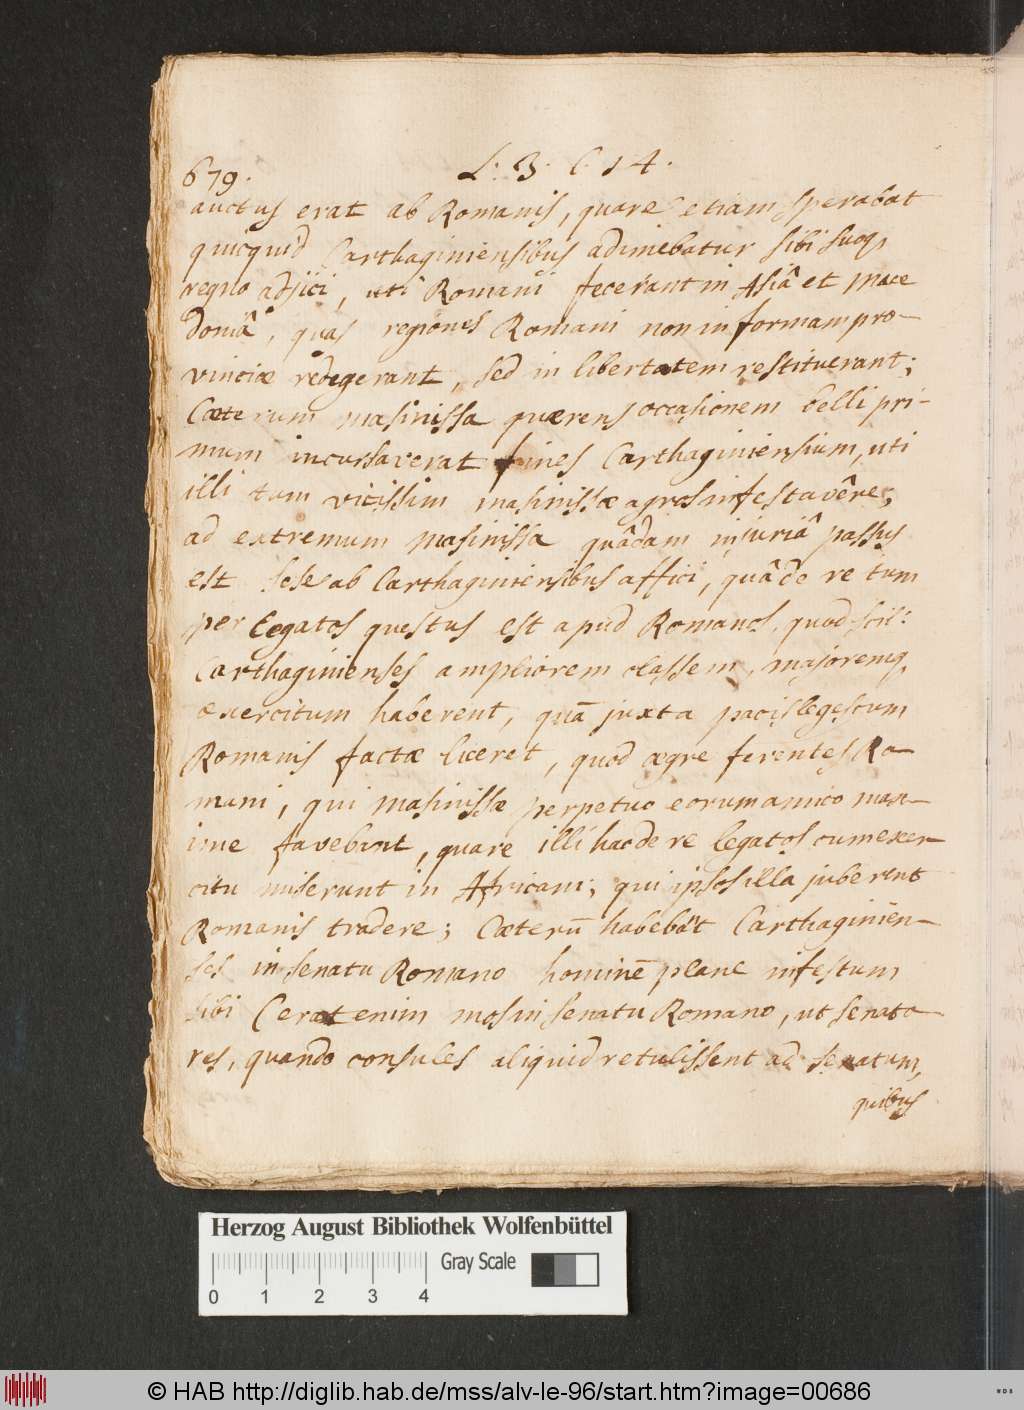 679.
L. 3. C. 14.
auctus erat ab Romanis, quare etiam sperabat
quicquid Carthaginiensibus adimebatur sibi suoq,
regno adjici, uti Romani fecerant in Asiâ et Mace
doniâ, quas regiones Romani non in formam pro-
vinciæ redegerant, sed in libertatem restituerant;
Cæterum Masinissa quærens occasionem belli pri-
mum incursaverat fines Carthaginiensium, uti
illi tum vicissim Masinissæ agros infestavêre;
ad extremum Masinissa quâdam injuriâ passus
est sese ab Carthaginiensibus affici, quâ de re tum
per legatos questus est apud Romanos, quod scil:
Carthaginienses ampliorem classem, majoremq,
exercitum haberent, quā juxta pacis leges cum
Romanis factæ liceret, quod ægre ferentes Ro-
mani, qui Masinissæ perpetuo eorum amico max-
ime favebant, quare illi hac de re legatos cum exer-
citu miserunt in Africam; qui ipsos illa juberent
Romanis tradere; Cæterū habebāt Carthaginien-
ses in senatu Romano hominē plane infestum
sibi (erat enim mos in senatu Romano, ut senato-
res, quando consules aliquid retulissent ad senatum,
quibus
Herzog August Bibliothek Wolfenbüttel
Gray Scale
0 1 2 3 4
© HAB http://diglib.hab.de/mss/alv-le-96/start.htm?image=00686